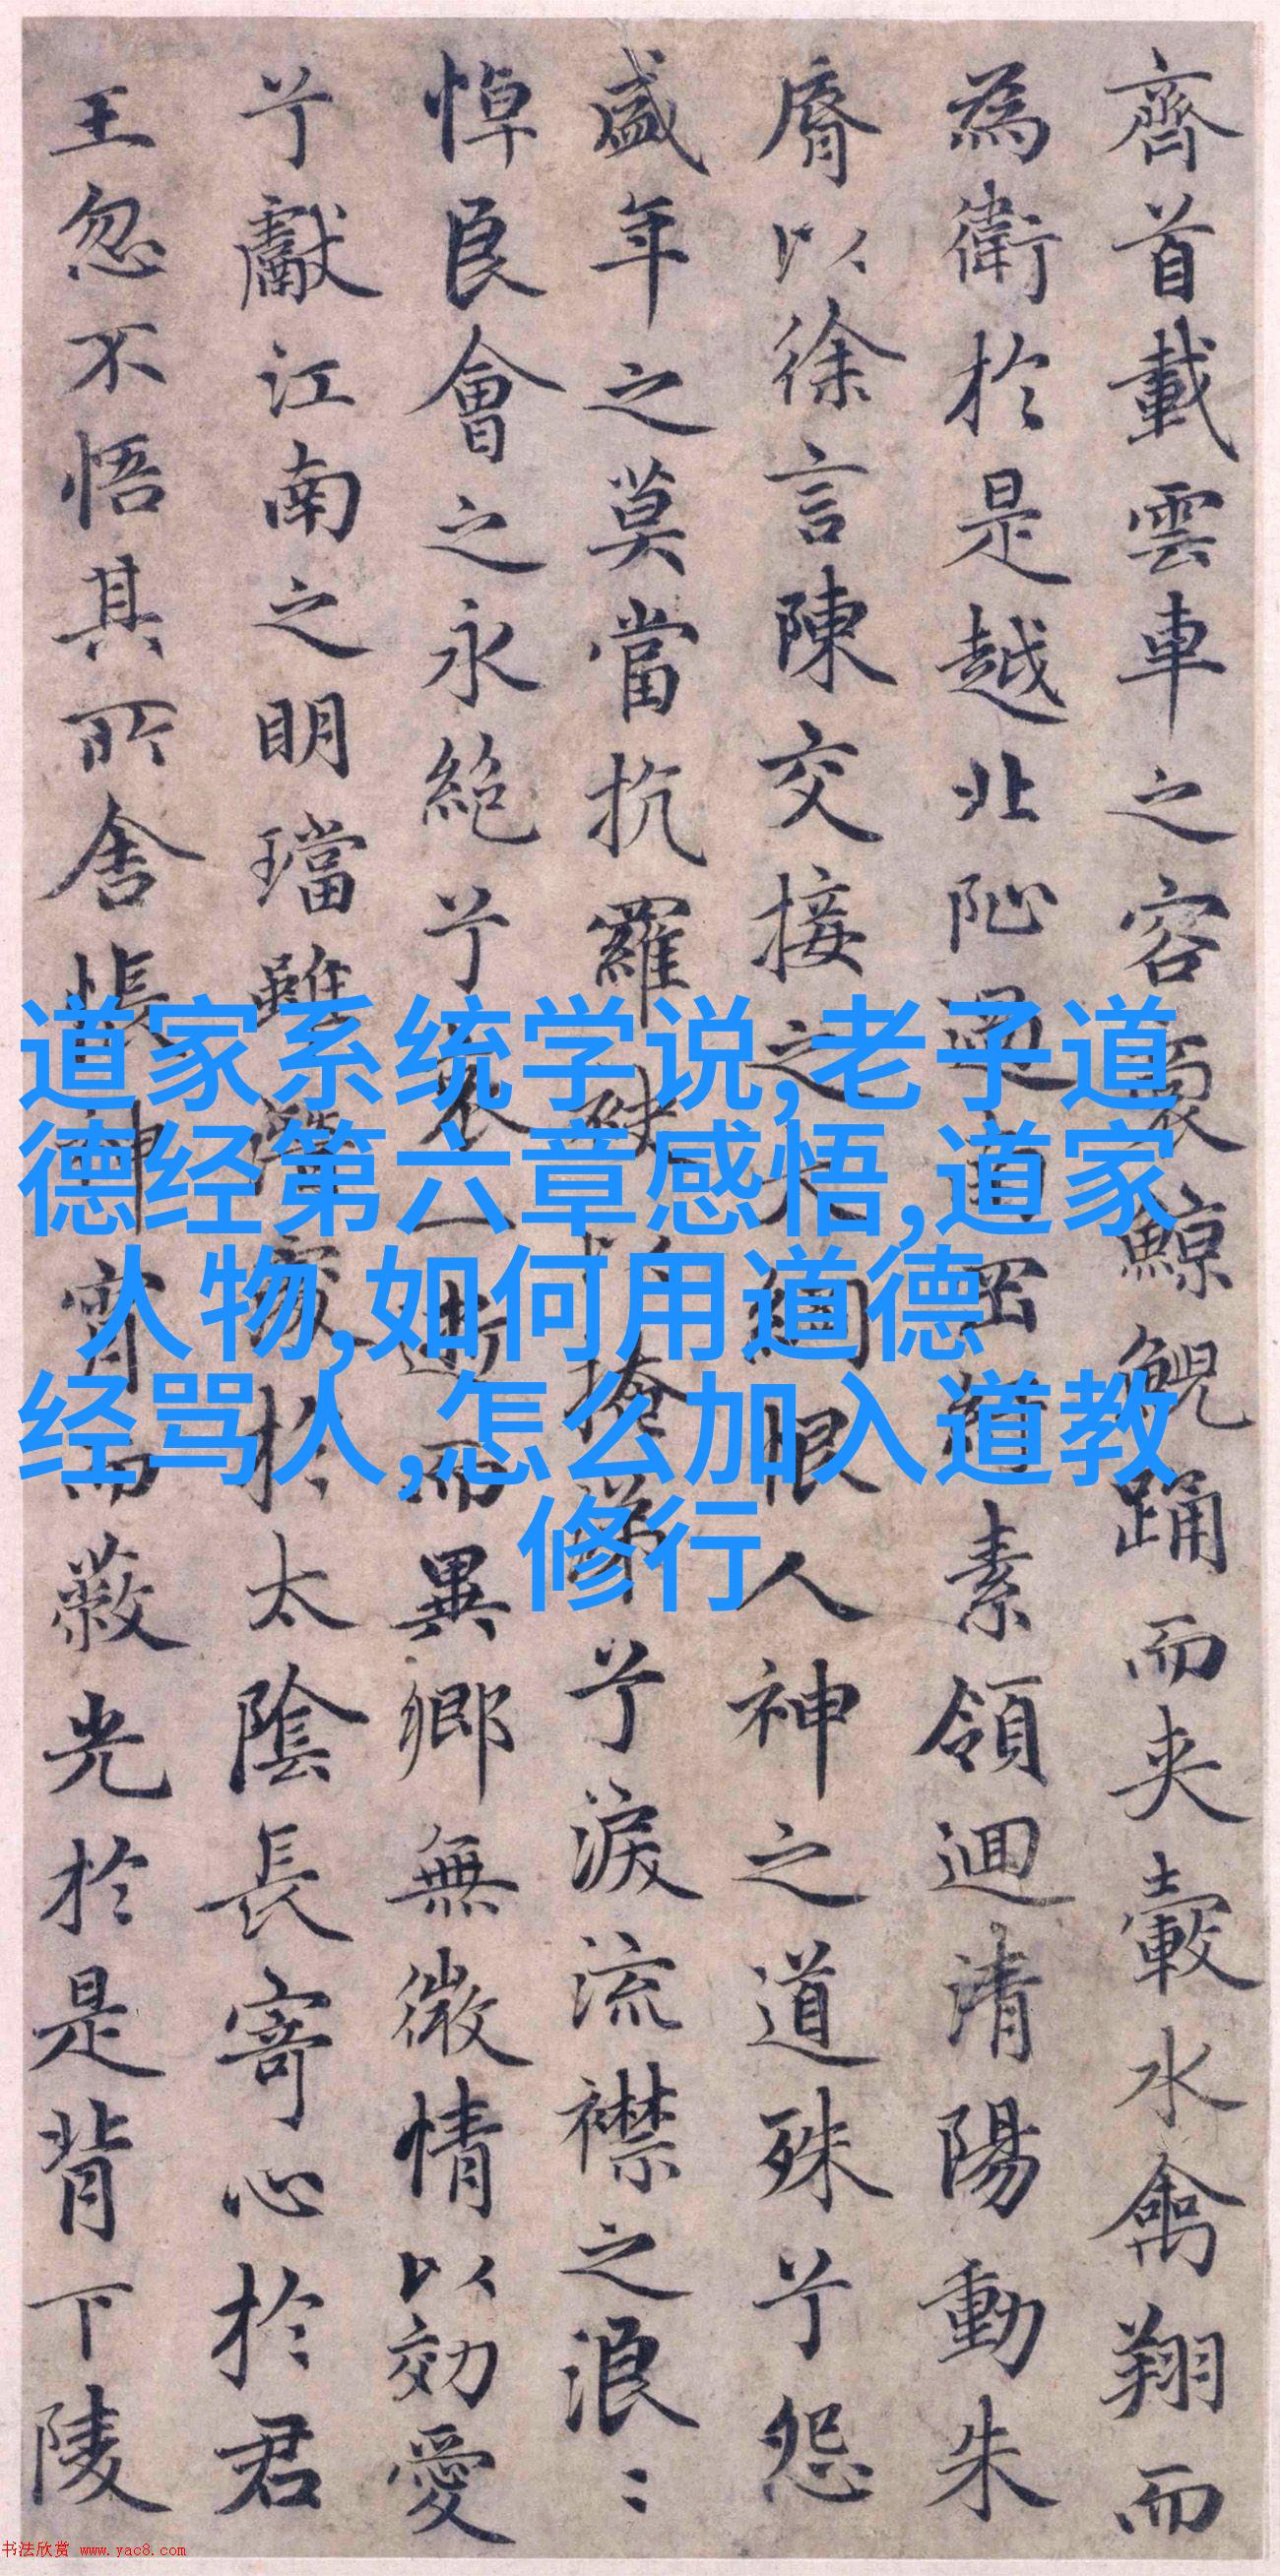 齊首載雲車之容裔鯨鯢踊而夾轂水禽翔而
為衛於是越北沚過南岡紆素領迴清陽動朱
脣以徐言陳交接之大綱恨人神之道殊兮怨
盛年之莫當抗羅袂以掩涕兮淚流襟之浪〻
悼良會之永絶兮哀一逝而異鄉無微情以効愛
兮獻江南之明璫雖潛處於太陰長寄心於君
王忽不悟其所舍悵神宵而蔽光於是背下陵
道家系统学说,老子道
德经第六章感悟,道家
人物,如何用道德
经骂人,怎么加入道教
修行
书法欣赏 www.yac8.com